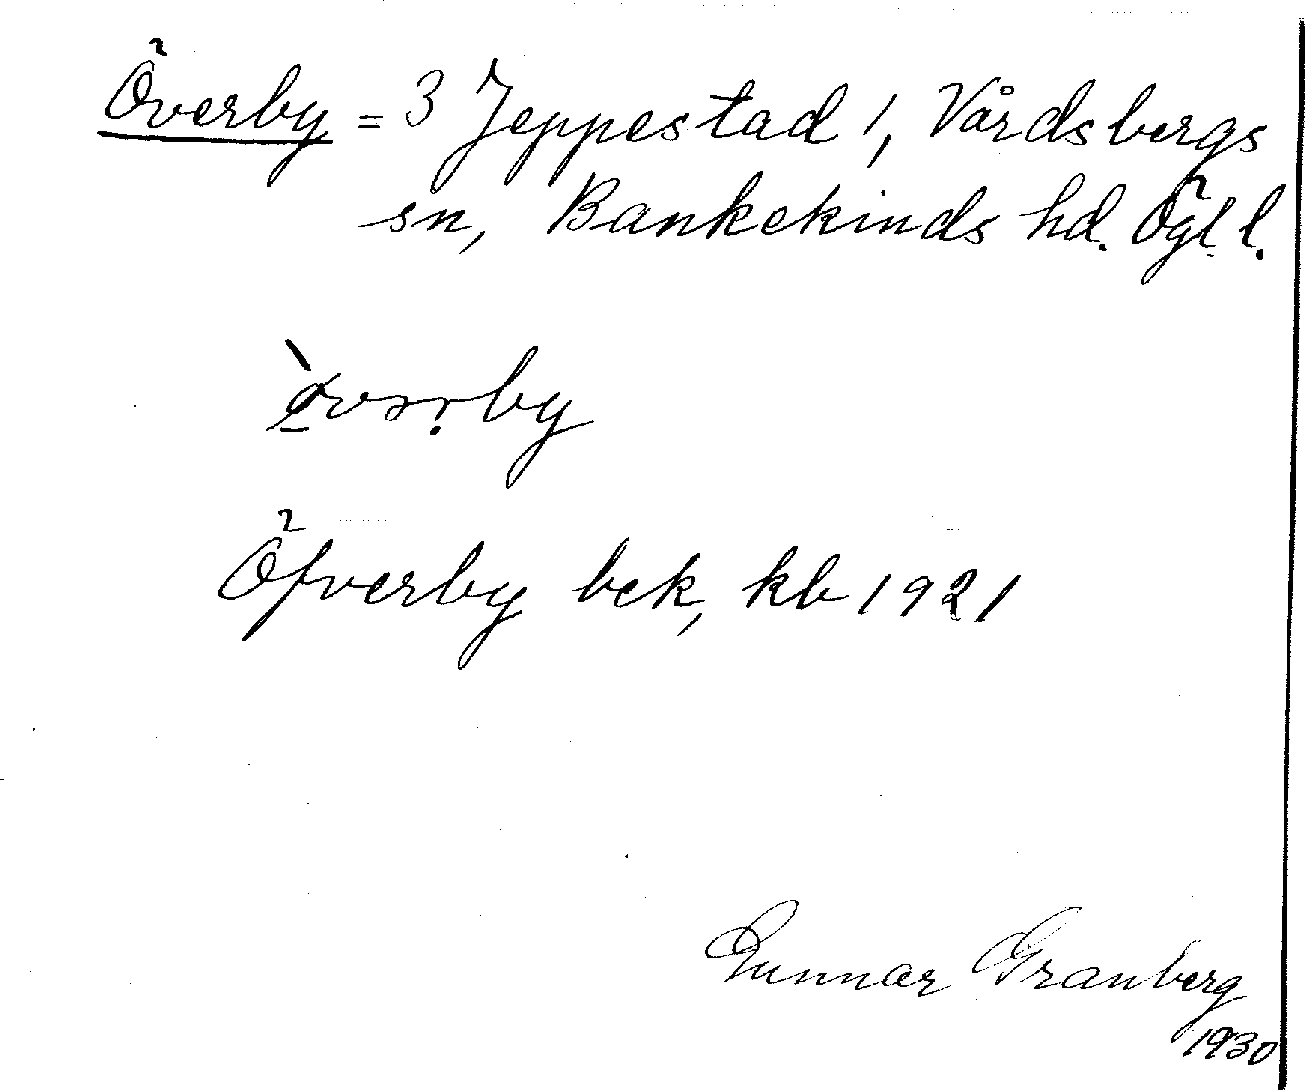 Överby = 3 Jeppestad 1, Vårdsbergs
sn, Bankekinds hd. Ögl l.
Öfverby bek, kb 1921
Gunnar Granberg
1930